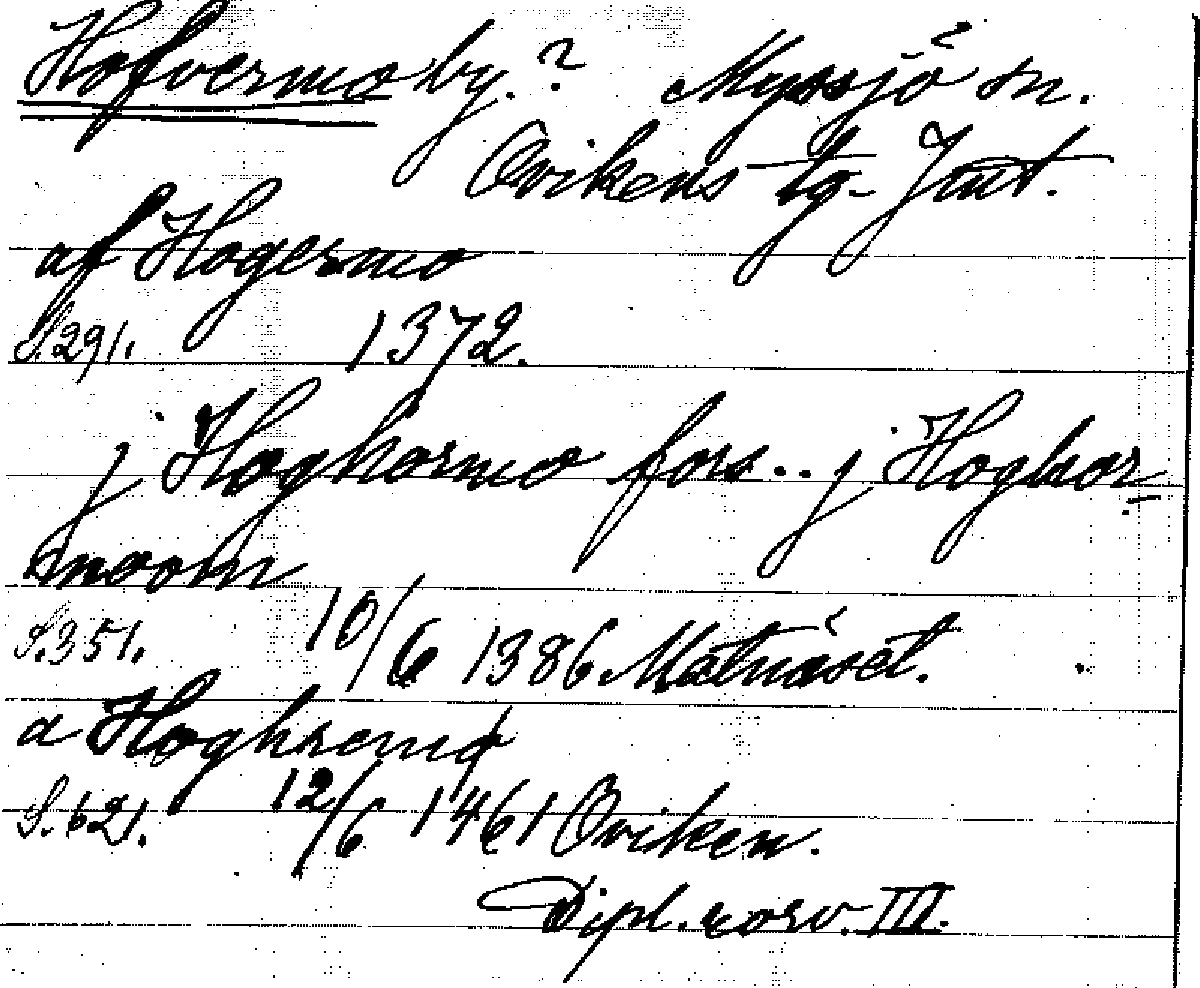 Hofvermo by.? Myssjö sn.
Ovikens tg. Jmt.
af Hogermo
S.291. 1372.
j Hoghormo fors.. j Hoghor-
moom
S.351. 10/6 1386 Mätnäset.
a Hoghremo
S.621. 12/6 1461 Oviken.
Dipl. norv. III.